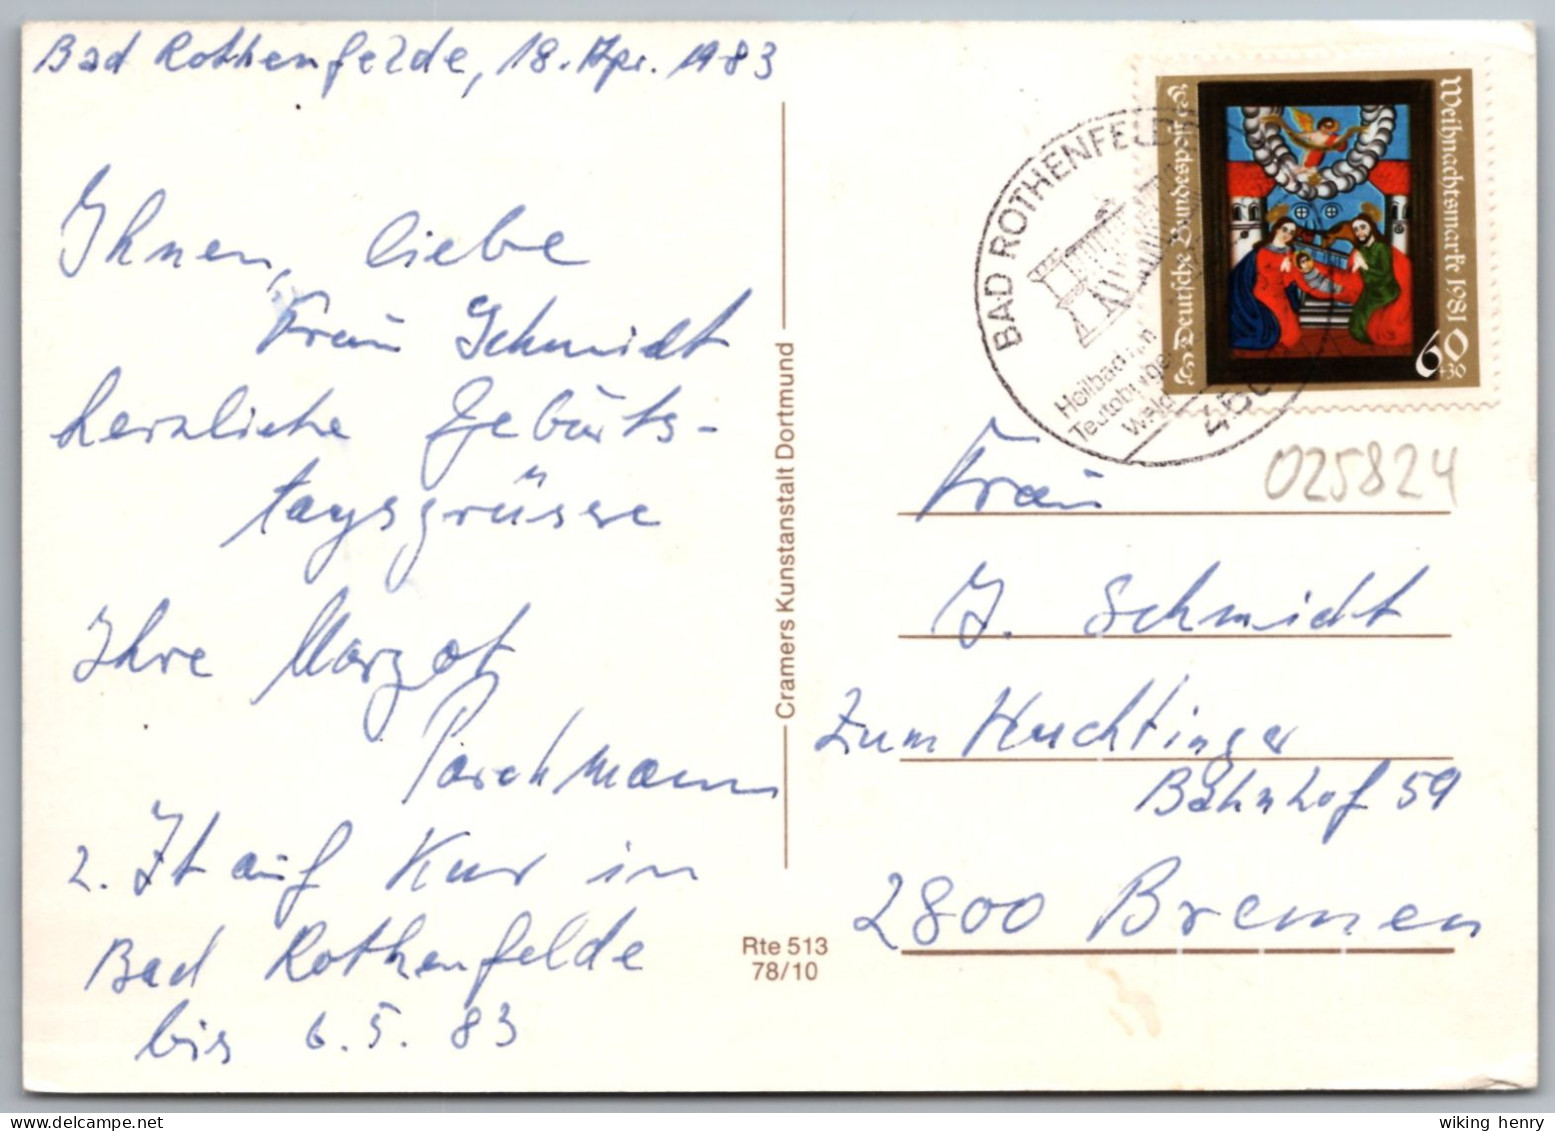 Bad Rothenfelde, 18. Apr. 1983
Ihnen, liebe
Frau Schmidt
herzliche Geburts-
tagsgrüsse
Ihre Margot
Parchmann
z. Zt auf Kur in
Bad Rothenfelde
bis 6.5.83
Cramers Kunstanstalt Dortmund
Rte 513
78/10
BAD ROTHENFELDE
Heilbad im
Teutoburger
Wald
450
Deutsche Bundespost
Weihnachtsmarke 1981
60
+30
025824
Frau
J. Schmidt
Zum Huchtinger
Bahnhof 59
2800 Bremen
wiking henry